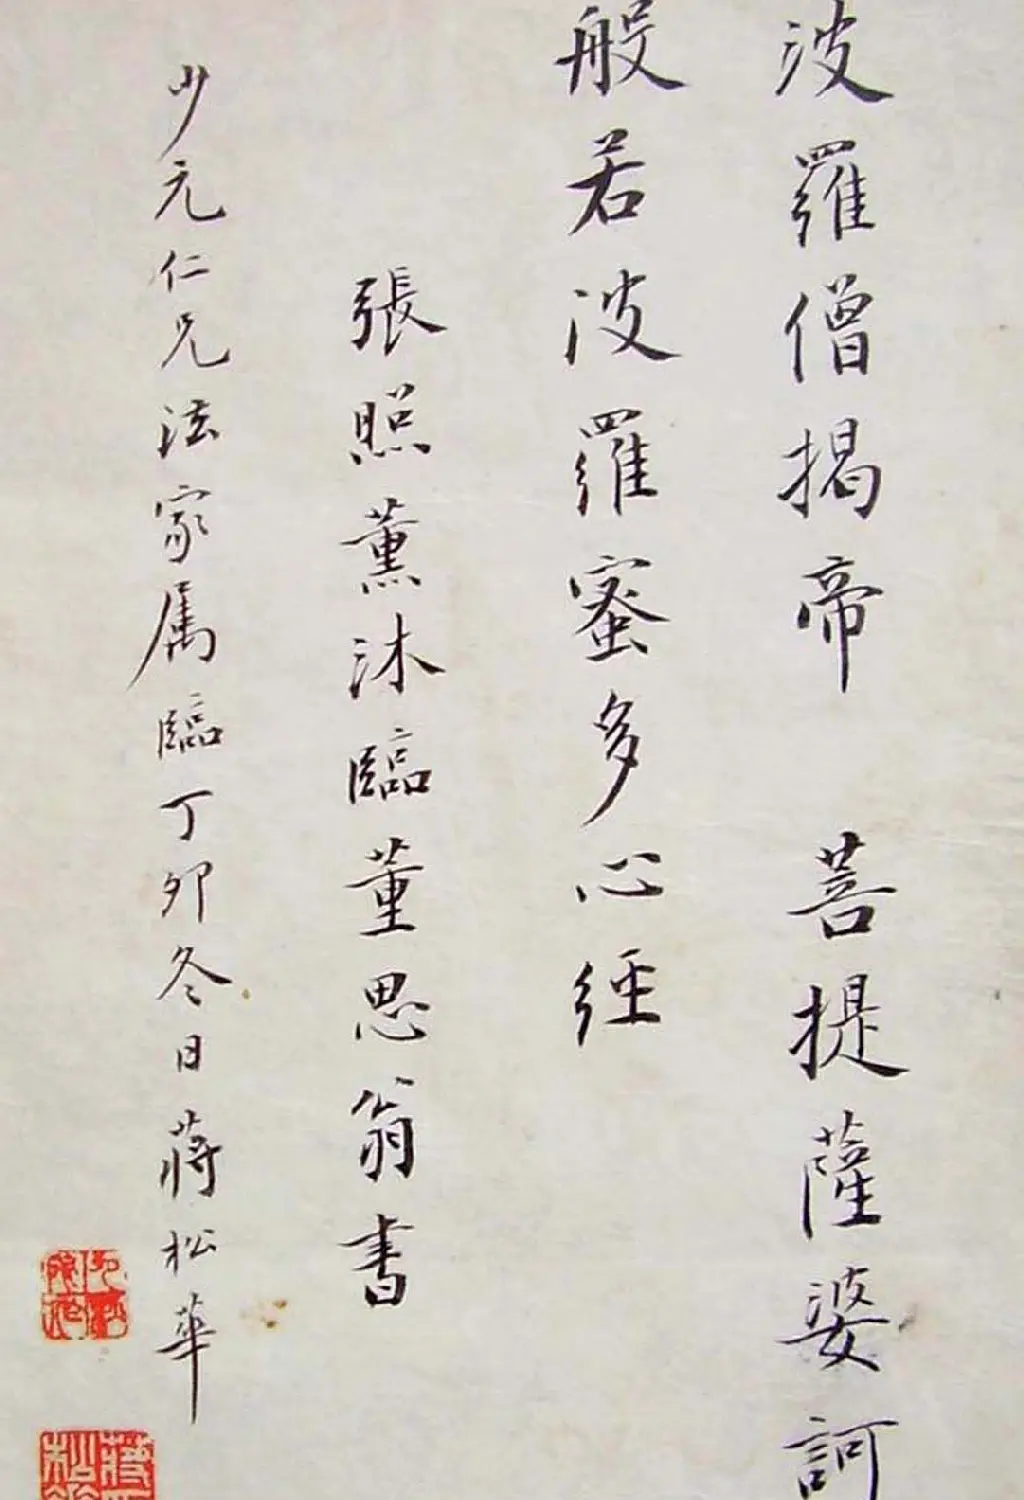 波羅僧揭帝 菩提薩婆訶
般若波羅蜜多心經
張照薰沐臨董思翁書
少元仁兄法家属臨丁卯冬日蔣松華